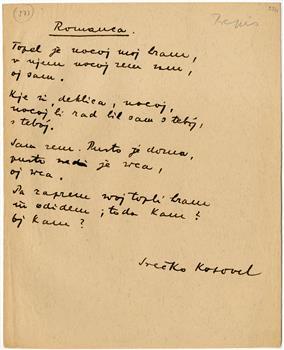 (233)
Prepis
Romanca.
Topel je nocoj moj hram,
v njem nocoj sem sam,
oj sam.
Kje si, deklica, nocoj,
nocoj bi rad bil sam s teboj,
s teboj.
Sam sem. Pusto je doma,
pusto je srca,
oj srca.
Pa zaprem svoj topli hram
in odidem, toda kam?
oj kam?
Srečko Kosovel